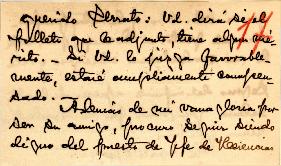 Querido Serrato: Vd. dirá si el
folleto que le adjunto, tiene algun mé-
rito. – Si Vd. lo juzga favorable-
mente, estaré ampliamente compen-
sado.
Además de mi vanagloria por
ser su amigo, procuro seguir siendo
digno del puesto de Jefe de Residencias